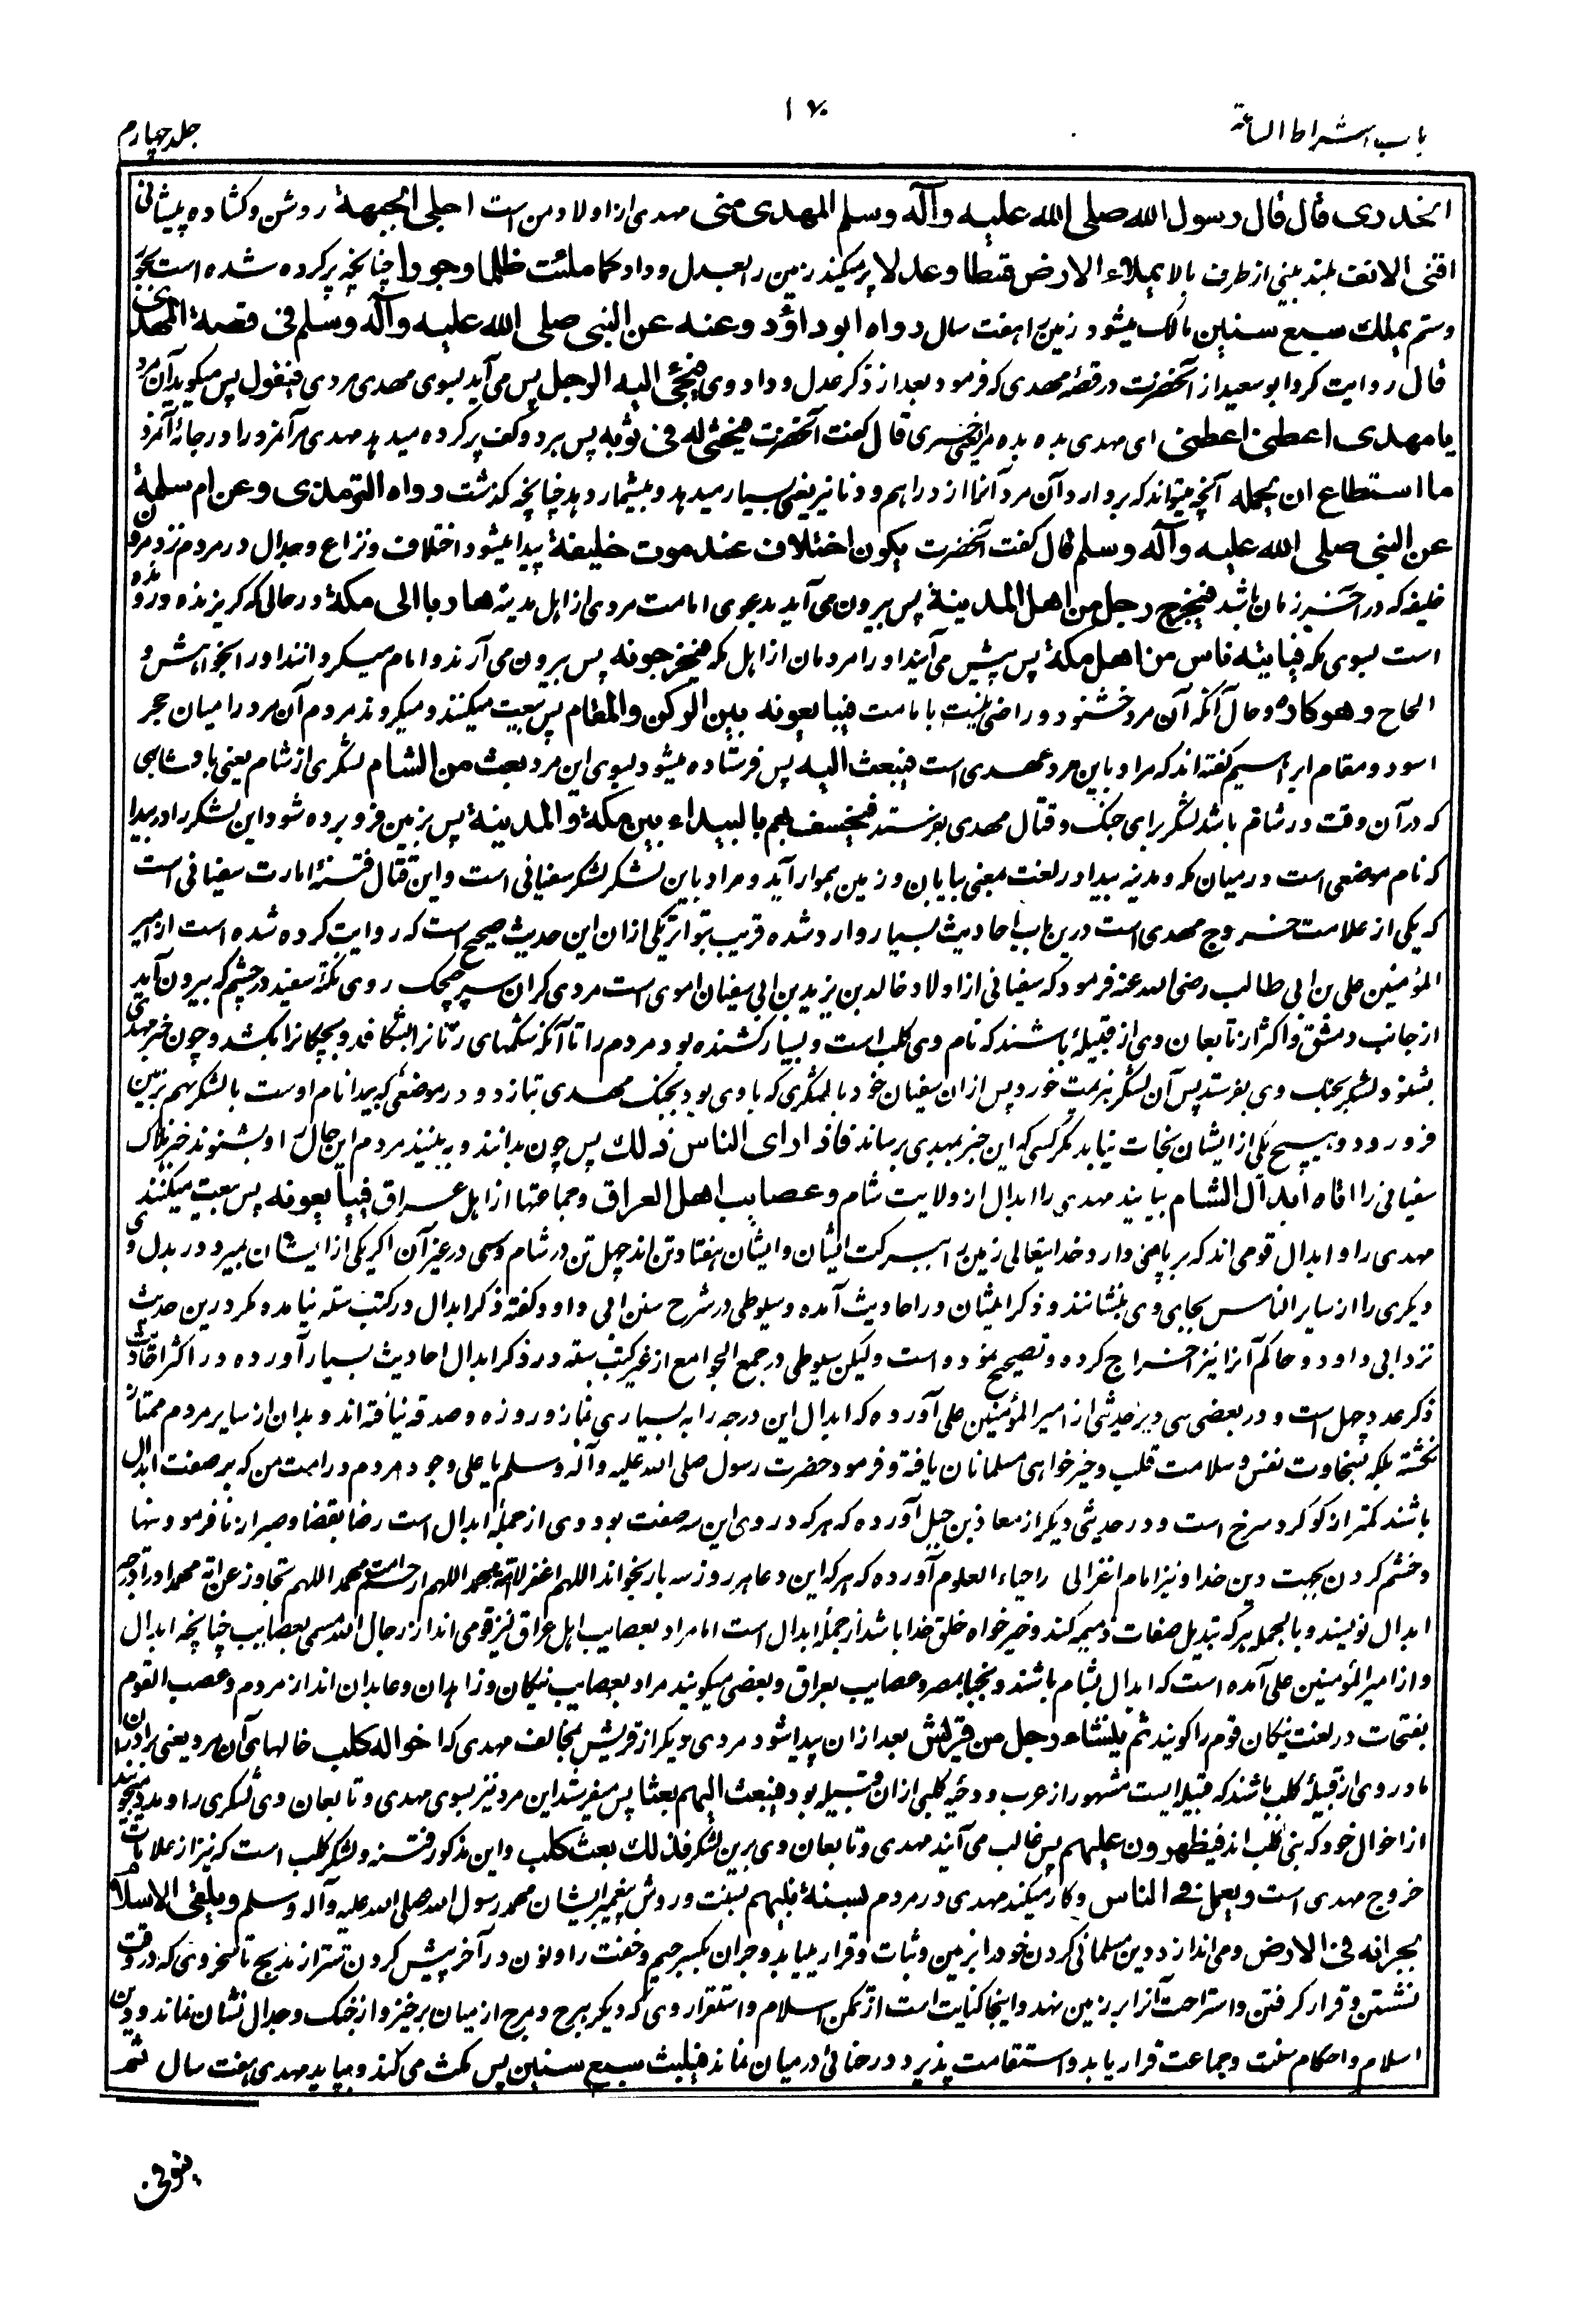 باب اشراط الساعة
جلد چهارم
الخدری قال قال رسول الله صلی الله علیه وآله وسلم المهدی منی مهدی از اولاد من است اجلی الجبهة روشن و کشاده پیشانی
اقنی الانف بلند بینی از طرف بالا یملاء الارض قسطا وعدلا پر میکند زمین را بعدل و داد کما ملئت ظلما وجورا چنانچه پر کرده شده است بجور
وستم یملك سبع سنین مالک میشود زمین را هفت سال رواه ابو داؤد وعنه عن النبی صلی الله علیه وآله وسلم فی قصة المهدی
قال روایت کرد ابو سعید از آنحضرت در قصهٔ مهدی که فرمود بعد از ذکر عدل و داد وی فیجئ الیه الرجل پس می آید بسوی مهدی مردی فیقول پس میکوید آن مرد
یا مهدی اعطنی اعطنی ای مهدی بده بده مرا چیزی قال کفت آنحضرت فیحثی له فی ثوبه پس بر دو کف پر کرده میدهد مهدی مر آنمرد را در جامهٔ آنمرد
ما استطاع ان یحمله آنچه میتواند که بردارد آن مرد آنرا از دراهم و دنانیر یعنی بسیار میدهد و بیشمار دهد چنانچه کذشت رواه الترمذی وعن ام سلمة
عن النبی صلی الله علیه وآله وسلم قال کفت آنحضرت یکون اختلاف عند موت خلیفة پیدا میشود اختلاف و نزاع و جدال در مردم نزد مردن
خلیفه که در آخر زمان باشد فیخرج رجل من اهل المدینة پس بیرون می آید بدعوی امامت مردی از اهل مدینه هاربا الی مکة در حالی که کریزنده و رونده
است بسوی مکه فیاتیه ناس من اهل مکة پس پیش می آیند او را مردمان از اهل مکه فیخرجونه پس بیرون می آرند و امام میکردانند او را بخواهش و
الحاح وهو کاره و حال آنکه آن مرد خشنود و راضی نیست بامامت فیبایعونه بین الرکن والمقام پس بیعت میکنند و میکروند مردم آن مرد را میان حجر
اسود و مقام ابراهیم کفته اند که مراد باین مرد مهدی است فیبعث الیه پس فرستاده میشود بسوی این مرد بعث من الشام لشکری از شام یعنی پادشاهی
که در آن وقت در شام باشد لشکر برای جنک و قتال مهدی بفرستد فیخسف بهم بالبیداء بین مکة والمدینة پس بزمین فرو برده شود این لشکر را در بیدا
که نام موضعی است در میان مکه و مدینه بیدا در لغت بمعنی بیابان و زمین هموار آید و مراد باین لشکر لشکر سفیانی است و این قتال فتنهٔ امارت سفیانی است
که یکی از علامت خروج مهدی است درین باب احادیث بسیار وارد شده قریب بتواتر یکی از ان این حدیث صحیح است که روایت کرده شده است از امیر
المؤمنین علی بن ابی طالب رضی الله عنه فرمود که سفیانی از اولاد خالد بن یزید بن ابی سفیان اموی است مردی کران سر چیچک روی نکتهٔ سفید در چشم که بیرون آید
از جانب دمشق و اکثر از تابعان وی از قبیلهٔ باشند که نام وی کلب است و بسیار کشنده بود مردم را تا آنکه شکمهای زنانرا بشکافد و بچکانرا بکشد و چون خبر مهدی
بشنود لشکر بجنک وی بفرستد پس آن لشکر هزیمت خورد پس از ان سفیان خود با لشکری که با وی بود بجنک مهدی بتازد و در موضعی که بیدا نام اوست با لشکر هم بزمین
فرو رود و هیچ یکی از ایشان نجات نیابد مکر کسی که این خبر بمهدی برساند فاذا رای الناس ذلك پس چون بدانند و به بینند مردم این حال را و بشنوند خبر هلاک
سفیانی را اتاه ابدال الشام بیایند مهدی را ابدال از ولایت شام وعصایب اهل العراق و جماعتها از اهل عراق فیبایعونه پس بیعت میکنند
مهدی را و ابدال قومی اند که بر پا میدارد خدایتعالی زمین را ببرکت ایشان و ایشان هفتاد تن اند چهل تن در شام و سی در غیر آن اکر یکی از ایشان بمیرد در بدل وی
دیکری را از سایر الناس بجای وی بنشانند و ذکر ایشان در احادیث آمده و سیوطی در شرح سنن ابی داود کفته ذکر ابدال در کتب سته نیامده مکر درین حدیث
نزد ابی داود و حاکم آنرا نیز اخراج کرده و تصحیح نموده است ولیکن سیوطی در جمع الجوامع از غیر کتب سته در ذکر ابدال احادیث بسیار آورده در اکثر احادیث
ذکر عدد چهل است و در بعضی سی و نیز حدیثی از امیر المؤمنین علی آورده که ابدال این درجه را به بسیاری نماز و روزه و صدقه نیافته اند و بدان از سایر مردم ممتاز
نکشته بلکه بسخاوت نفس و سلامت قلب و خیر خواهی مسلمانان یافته و فرمود حضرت رسول صلی الله علیه وآله وسلم یا علی وجود مردم در امت من که بر صفت ابدال
باشند کمتر از کوکرد سرخ است و در حدیثی دیکر از معاذ بن جبل آورده که هر که در وی این سه صفت بود وی از جملهٔ ابدال است رضا بقضا و صبر از نافرمودنها
و خشم کردن بجهت دین خدا و نیز امام غزالی در احیاء العلوم آورده که هر که این دعا هر روز سه بار بخواند اللهم اغفر لامة محمد اللهم ارحم امة محمد اللهم تجاوز عن امة محمد او را درجه
ابدال نویسند و بالجمله هر که تبدیل صفات ذمیمه کند و خیر خواه خلق خدا باشد از جملهٔ ابدال است اما مراد بعصایب اهل عراق نیز قومی اند از رجال الله مسمی بعصایب چنانچه ابدال
و از امیر المؤمنین علی آمده است که ابدال بشام باشند و نجبا بمصر و عصایب بعراق و بعضی میکویند مراد بعصایب نیکان و زاهدان و عابدان اند از مردم و عصب القوم
بفتحات در لغت نیکان قوم را کویند ثم ینشاء رجل من قریش بعد از ان پیدا شود مردی دیکر از قریش مخالف مهدی که اخواله کلب خالهای آن مرد یعنی برادران
مادر وی از قبیلهٔ کلب باشند که قبیله ایست مشهور از عرب و دحیهٔ کلبی از ان قبیله بود فیبعث الیهم بعثا پس میفرستد این مرد نیز بسوی مهدی و تابعان وی لشکری را و مدد میجویند
از اخوال خود که بنی کلب اند فیظهرون علیهم پس غالب می آیند مهدی و تابعان وی برین لشکر فذلك بعث کلب و این مذکور فتنه و لشکر کلب است که نیز از علامات
خروج مهدی است ویعمل فی الناس و کار میکند مهدی در مردم بسنة نبیهم بسنت و روش پیغمبر ایشان محمد رسول الله صلی الله علیه وآله وسلم ویلقی الاسلام
بجرانه فی الارض و می اندازد دین مسلمانی کردن خود را بر زمین و ثبات و قرار مییابد و جران بکسر جیم و خفت را و نون در آخر پیش کردن شتر از مذبح تا منحر وی که در وقت
نشستن و قرار کرفتن و استراحت آنرا بر زمین نهد و اینجا کنایت است از تمکن اسلام و استقرار وی که دیکر هرج و مرج از میان برخیزد و از جنک و جدال نشان نماند و دین
اسلام و احکام سنت و جماعت قرار یابد و استقامت پذیرد و در میان نماند فیلبث سبع سنین پس مکث می کند و میپاید مهدی هفت سال ثم
یتوفی